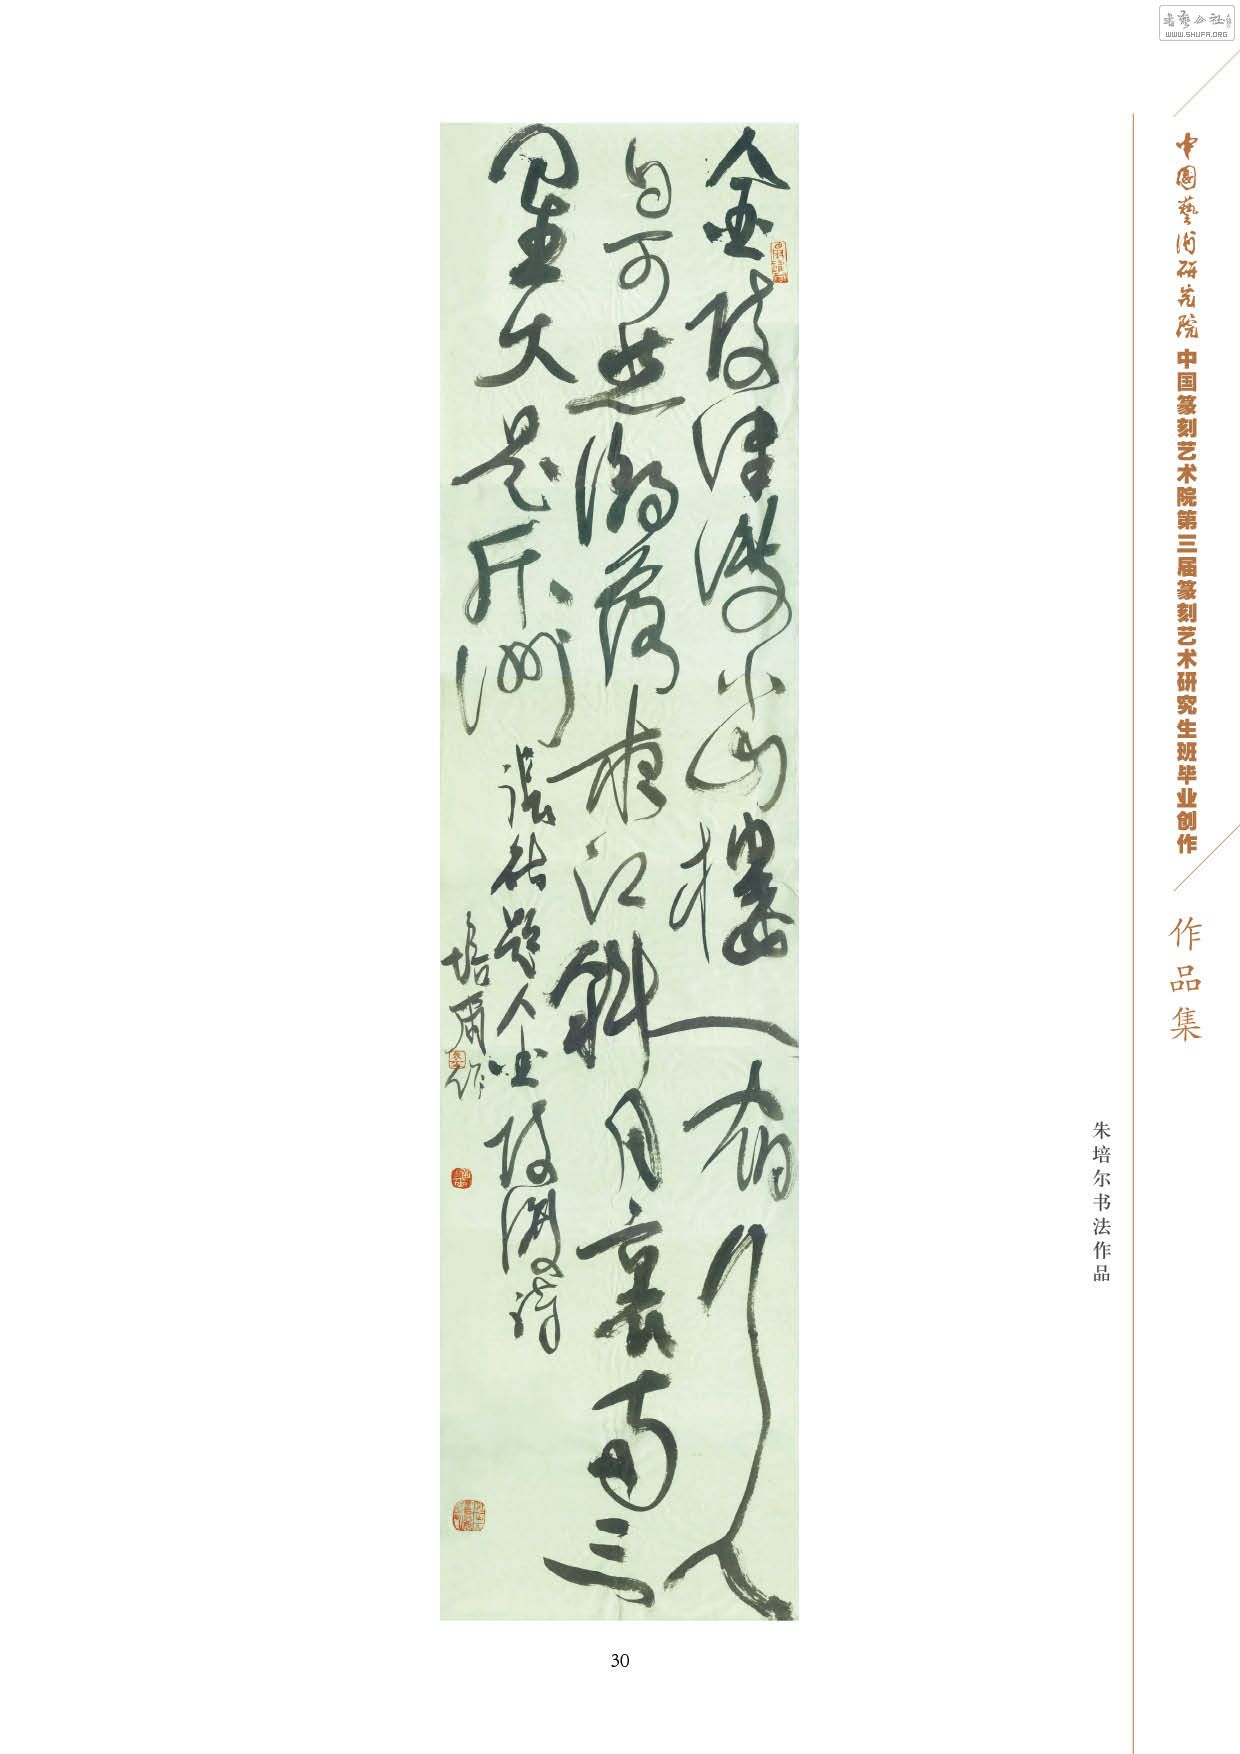 書藝公社
WWW.SHUFA.ORG
中國藝術研究院 中国篆刻艺术院第三届篆刻艺术研究生班毕业创作
作品集
朱培尔书法作品
金陵津渡小山樓一宿行人
自可愁潮落夜江斜月裏兩三
星火是瓜洲 張祜題金陵渡詩
培爾作
30